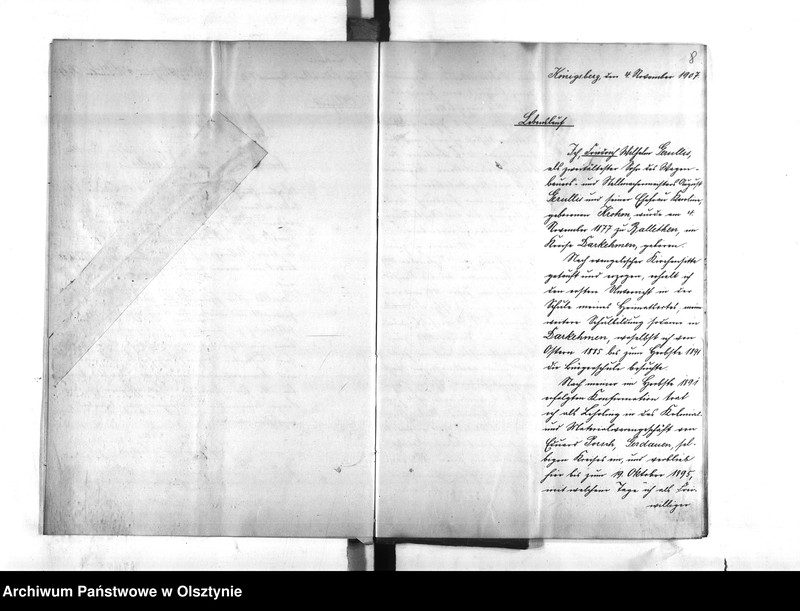 8
Königsberg, den 4 November 1907.
Lebenslauf
Ich, Friedrich Wilhelm Grulles,
als zweitältester Sohn des Wagen-
bauers- und Stellmachermeisters August
Grulles und seiner Ehefrau Karoline,
geborenen Krohm, wurde am 4.
November 1877 zu Ballethen, im
Kreise Darkehmen, geboren.
Nach evangelischer Kirchensitte
getauft und erzogen, erhielt ich
den ersten Unterricht in der
Schule meines Heimatsortes, meine
weitere Schulbildung sodann in
Darkehmen, woselbst ich von
Ostern 1885 bis zum Herbste 1891
die Bürgerschule besuchte.
Nach meiner im Herbste 1891
erfolgten Konfirmation trat
ich als Lehrling in das Kolonial-
und Materialwarengeschäft von
Eduard Gerdauen, sel-
bigen Kreises ein, und verblieb
hier bis zum 19. Oktober 1895,
mit welchem Tage ich als Frei-
williger
Archiwum Państwowe w Olsztynie